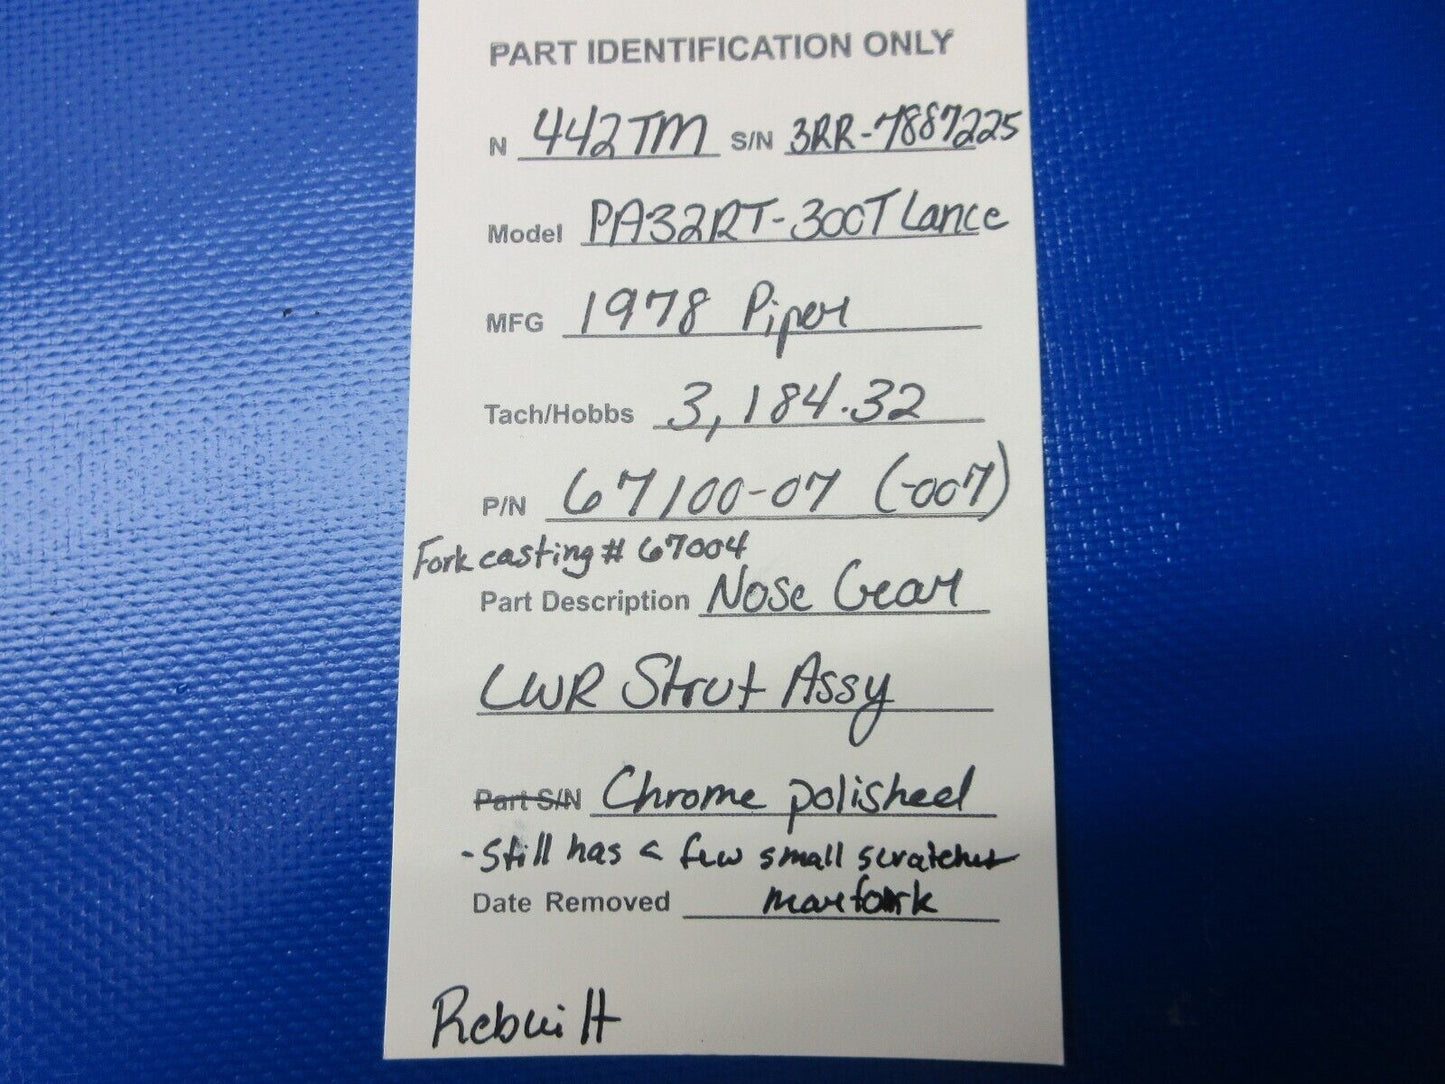 PART IDENTIFICATION ONLY
N 442TM S/N 3RR-7887225
Model PA32RT-300T Lance
MFG 1978 Piper
Tach/Hobbs 3,184.32
P/N 67100-07 (-007)
Fork casting # 67004
Part Description Nose Gear
LWR Strut Assy
Part S/N Chrome polished
-Still has a few small scratches
Date Removed near fork
Rebuilt